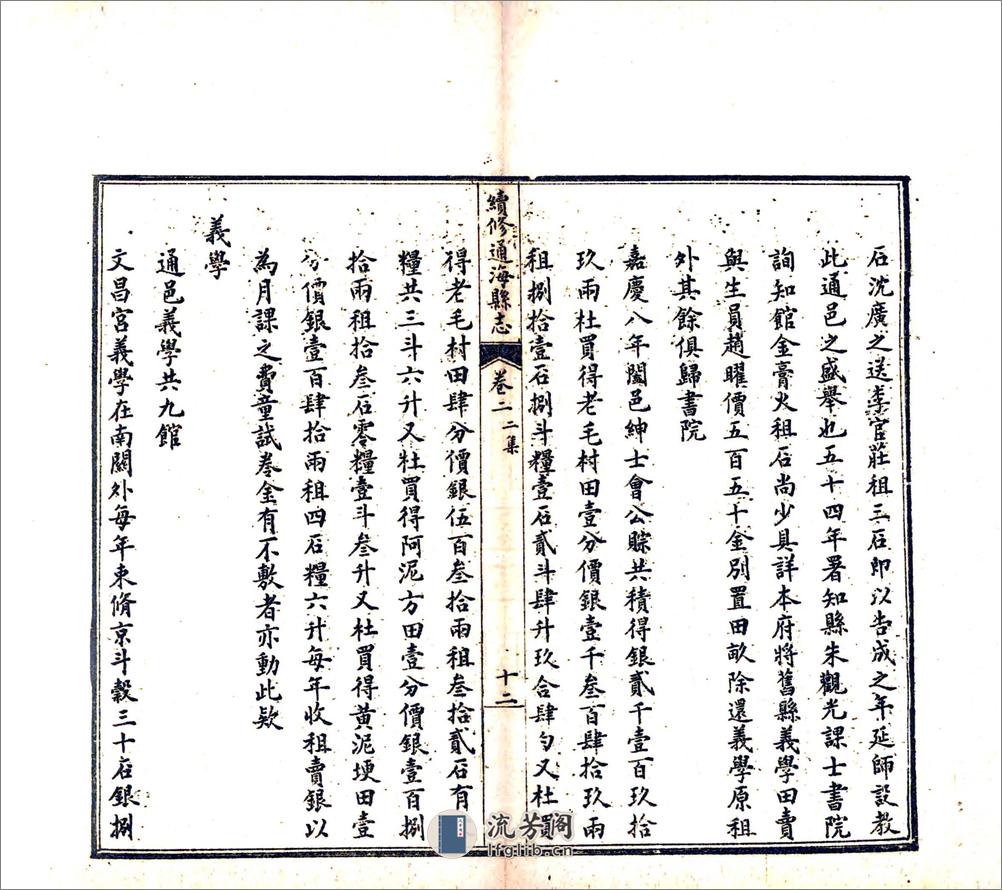 石沈廣之送李官莊租三石即以告成之年延師設教
此通邑之盛舉也五十四年署知縣朱觀光課士書院
詢知館金膏火租石尚少具詳本府將舊縣義學田賣
與生員趙曜價五百五十金別置田畝除還義學原租
外其餘俱歸書院
嘉慶八年闔邑紳士會公賒共積得銀貳千壹百玖拾
玖兩杜買得老毛村田壹分價銀壹千叁百肆拾玖兩
租捌拾壹石捌斗糧壹石貳斗肆升玖合肆勺又杜買
續修通海縣志
卷二
二集
十二
得老毛村田肆分價銀伍百叁拾兩租叁拾貳石有
糧共三斗六升又杜買得阿泥方田壹分價銀壹百捌
拾兩租拾叁石零糧壹斗叁升又杜買得黃泥埂田壹
分價銀壹百肆拾兩租四石糧六升每年收租賣銀以
為月課之費童試卷金有不敷者亦動此欵
義學
通邑義學共九館
文昌宮義學在南關外每年束脩京斗穀三十石銀捌
流芳阁
lfglib.cn